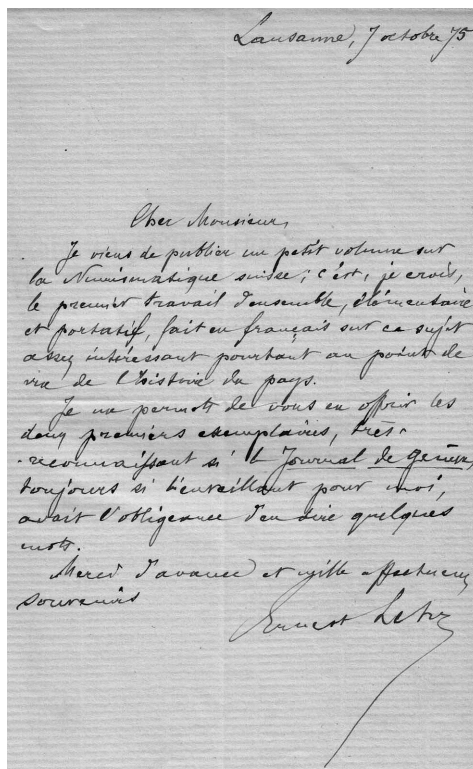 Lausanne, 7 octobre 75
Cher Monsieur,
Je viens de publier un petit volume sur
la Numismatique suisse; c'est, je crois,
le premier travail d'ensemble, élémentaire
et portatif, fait en français sur ce sujet
assez intéressant pourtant au point de
vue de l'histoire du pays.
Je me permets de vous en offrir les
deux premiers exemplaires, très-
-reconnaissant si le Journal de Genève,
toujours si bienveillant pour moi,
avait l'obligeance d'en dire quelques
mots.
Merci d'avance et mille affectueux
souvenirs
Ernest Lehr